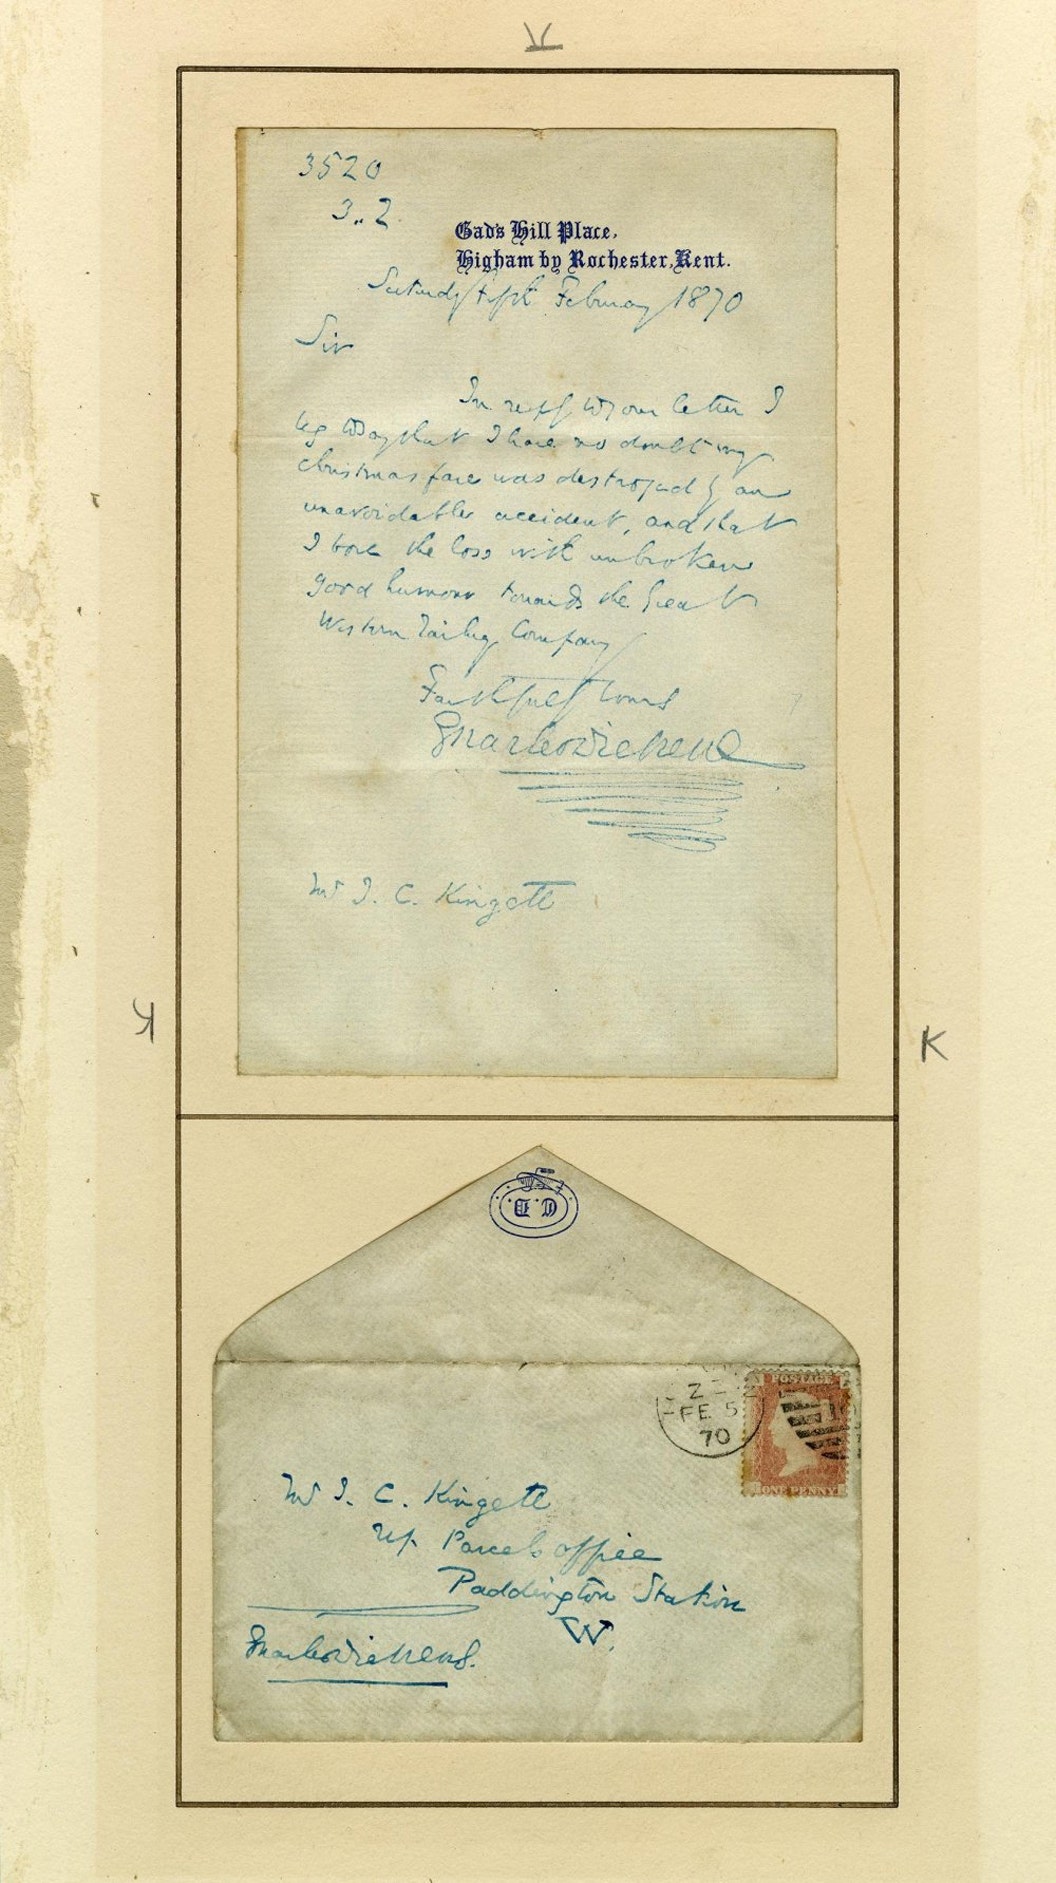 K
3520
3.. 2.
Gad's Hill Place,
Higham by Rochester, Kent.
Saturday Fifth February 1870
Sir
In reply to your letter I
beg to say that I have no doubt my
christmas fare was destroyed by an
unavoidable accident, and that
I bore the loss with unbroken
good humour towards the Great
Western Railway Company
Faithfully Yours
Charles Dickens
Mr J. C. Kingett
K
K
C.D.
POSTAGE
FE 5
70
ONE PENNY
Mr J. C. Kingett
Parcels office
Paddington Station
W.
Charles Dickens.